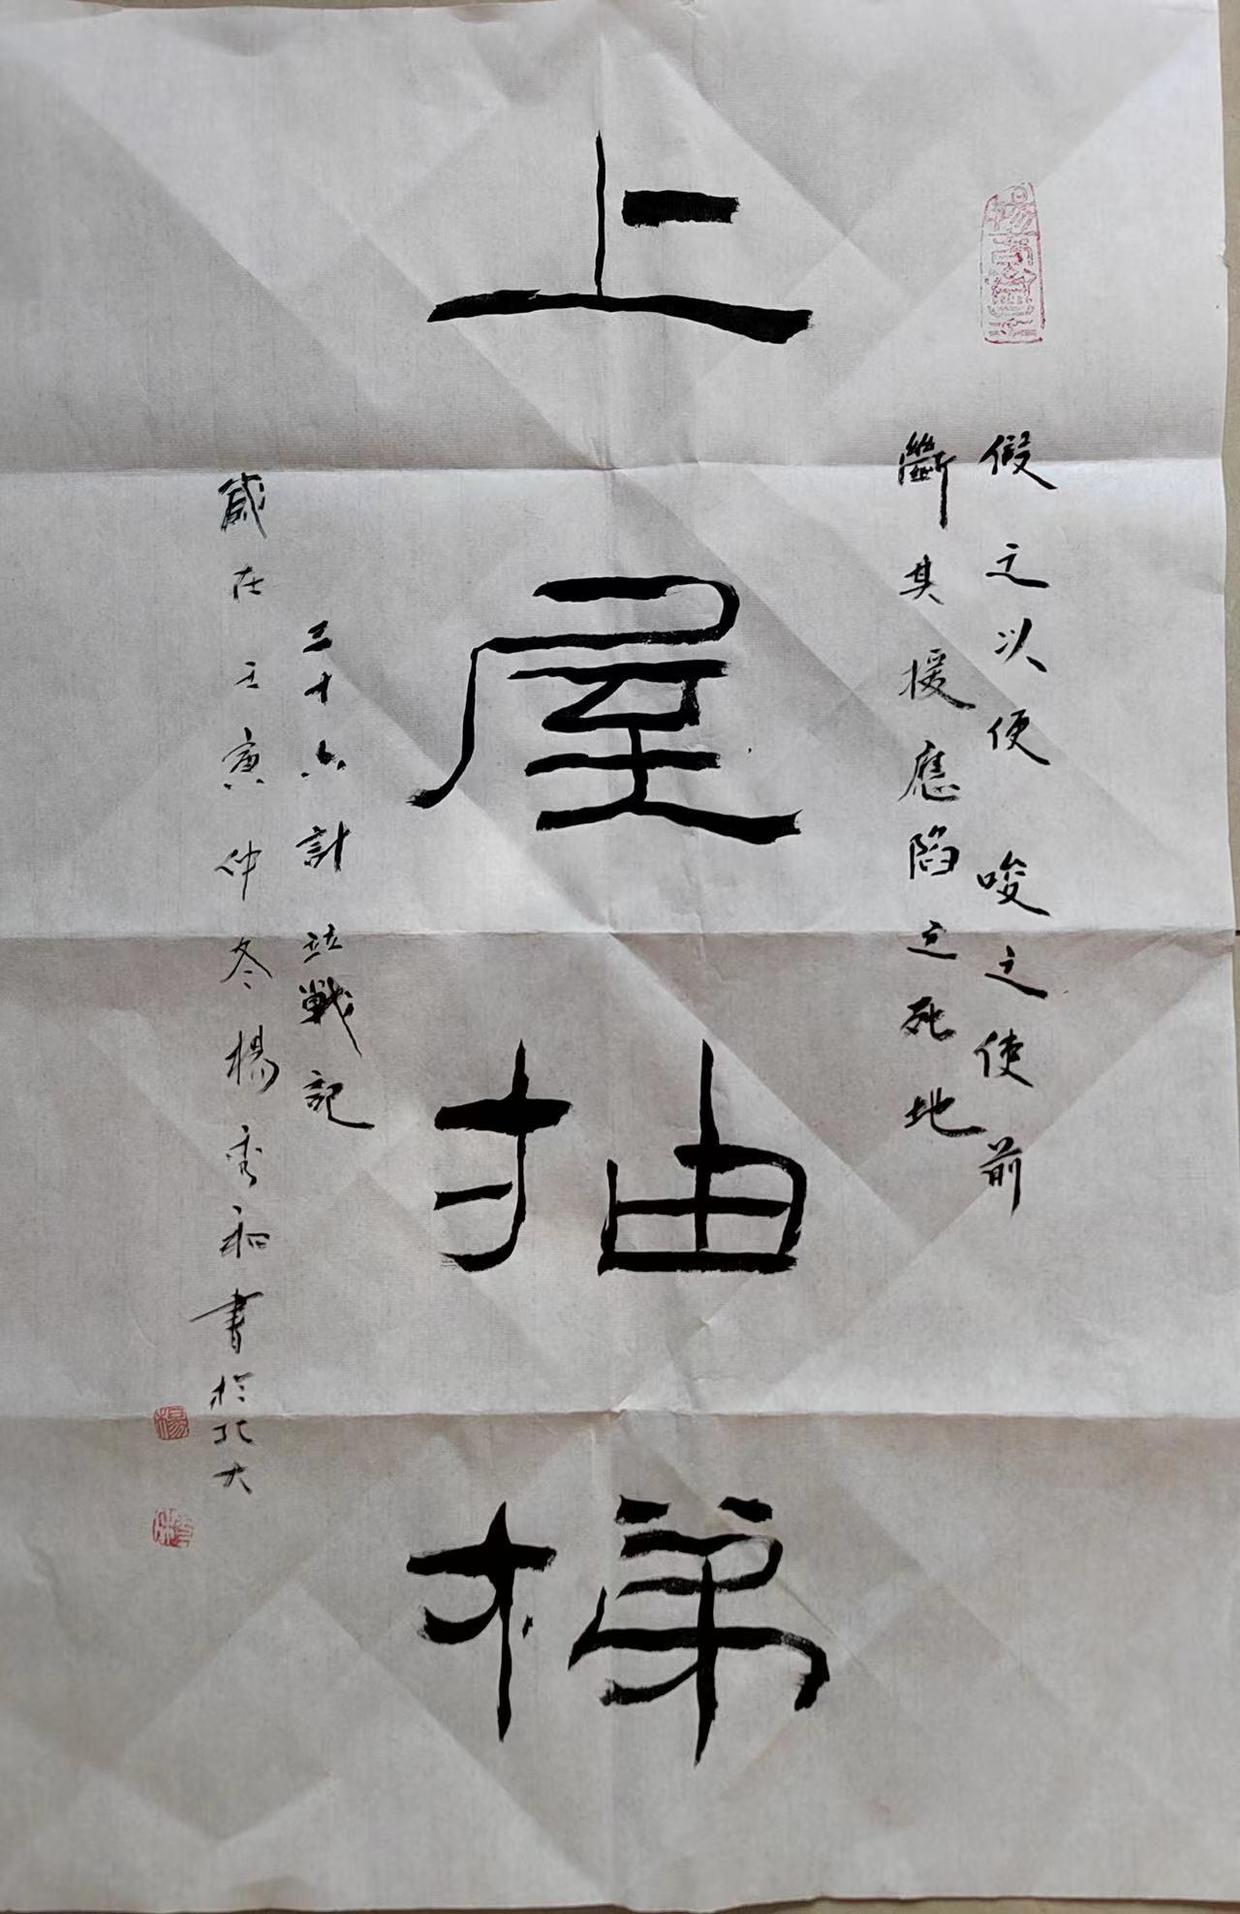 假之以便唆之使前
斷其援應陷之死地
上屋抽梯
三十六計並戰記
歲在壬寅仲冬楊秀和書於北大
楊